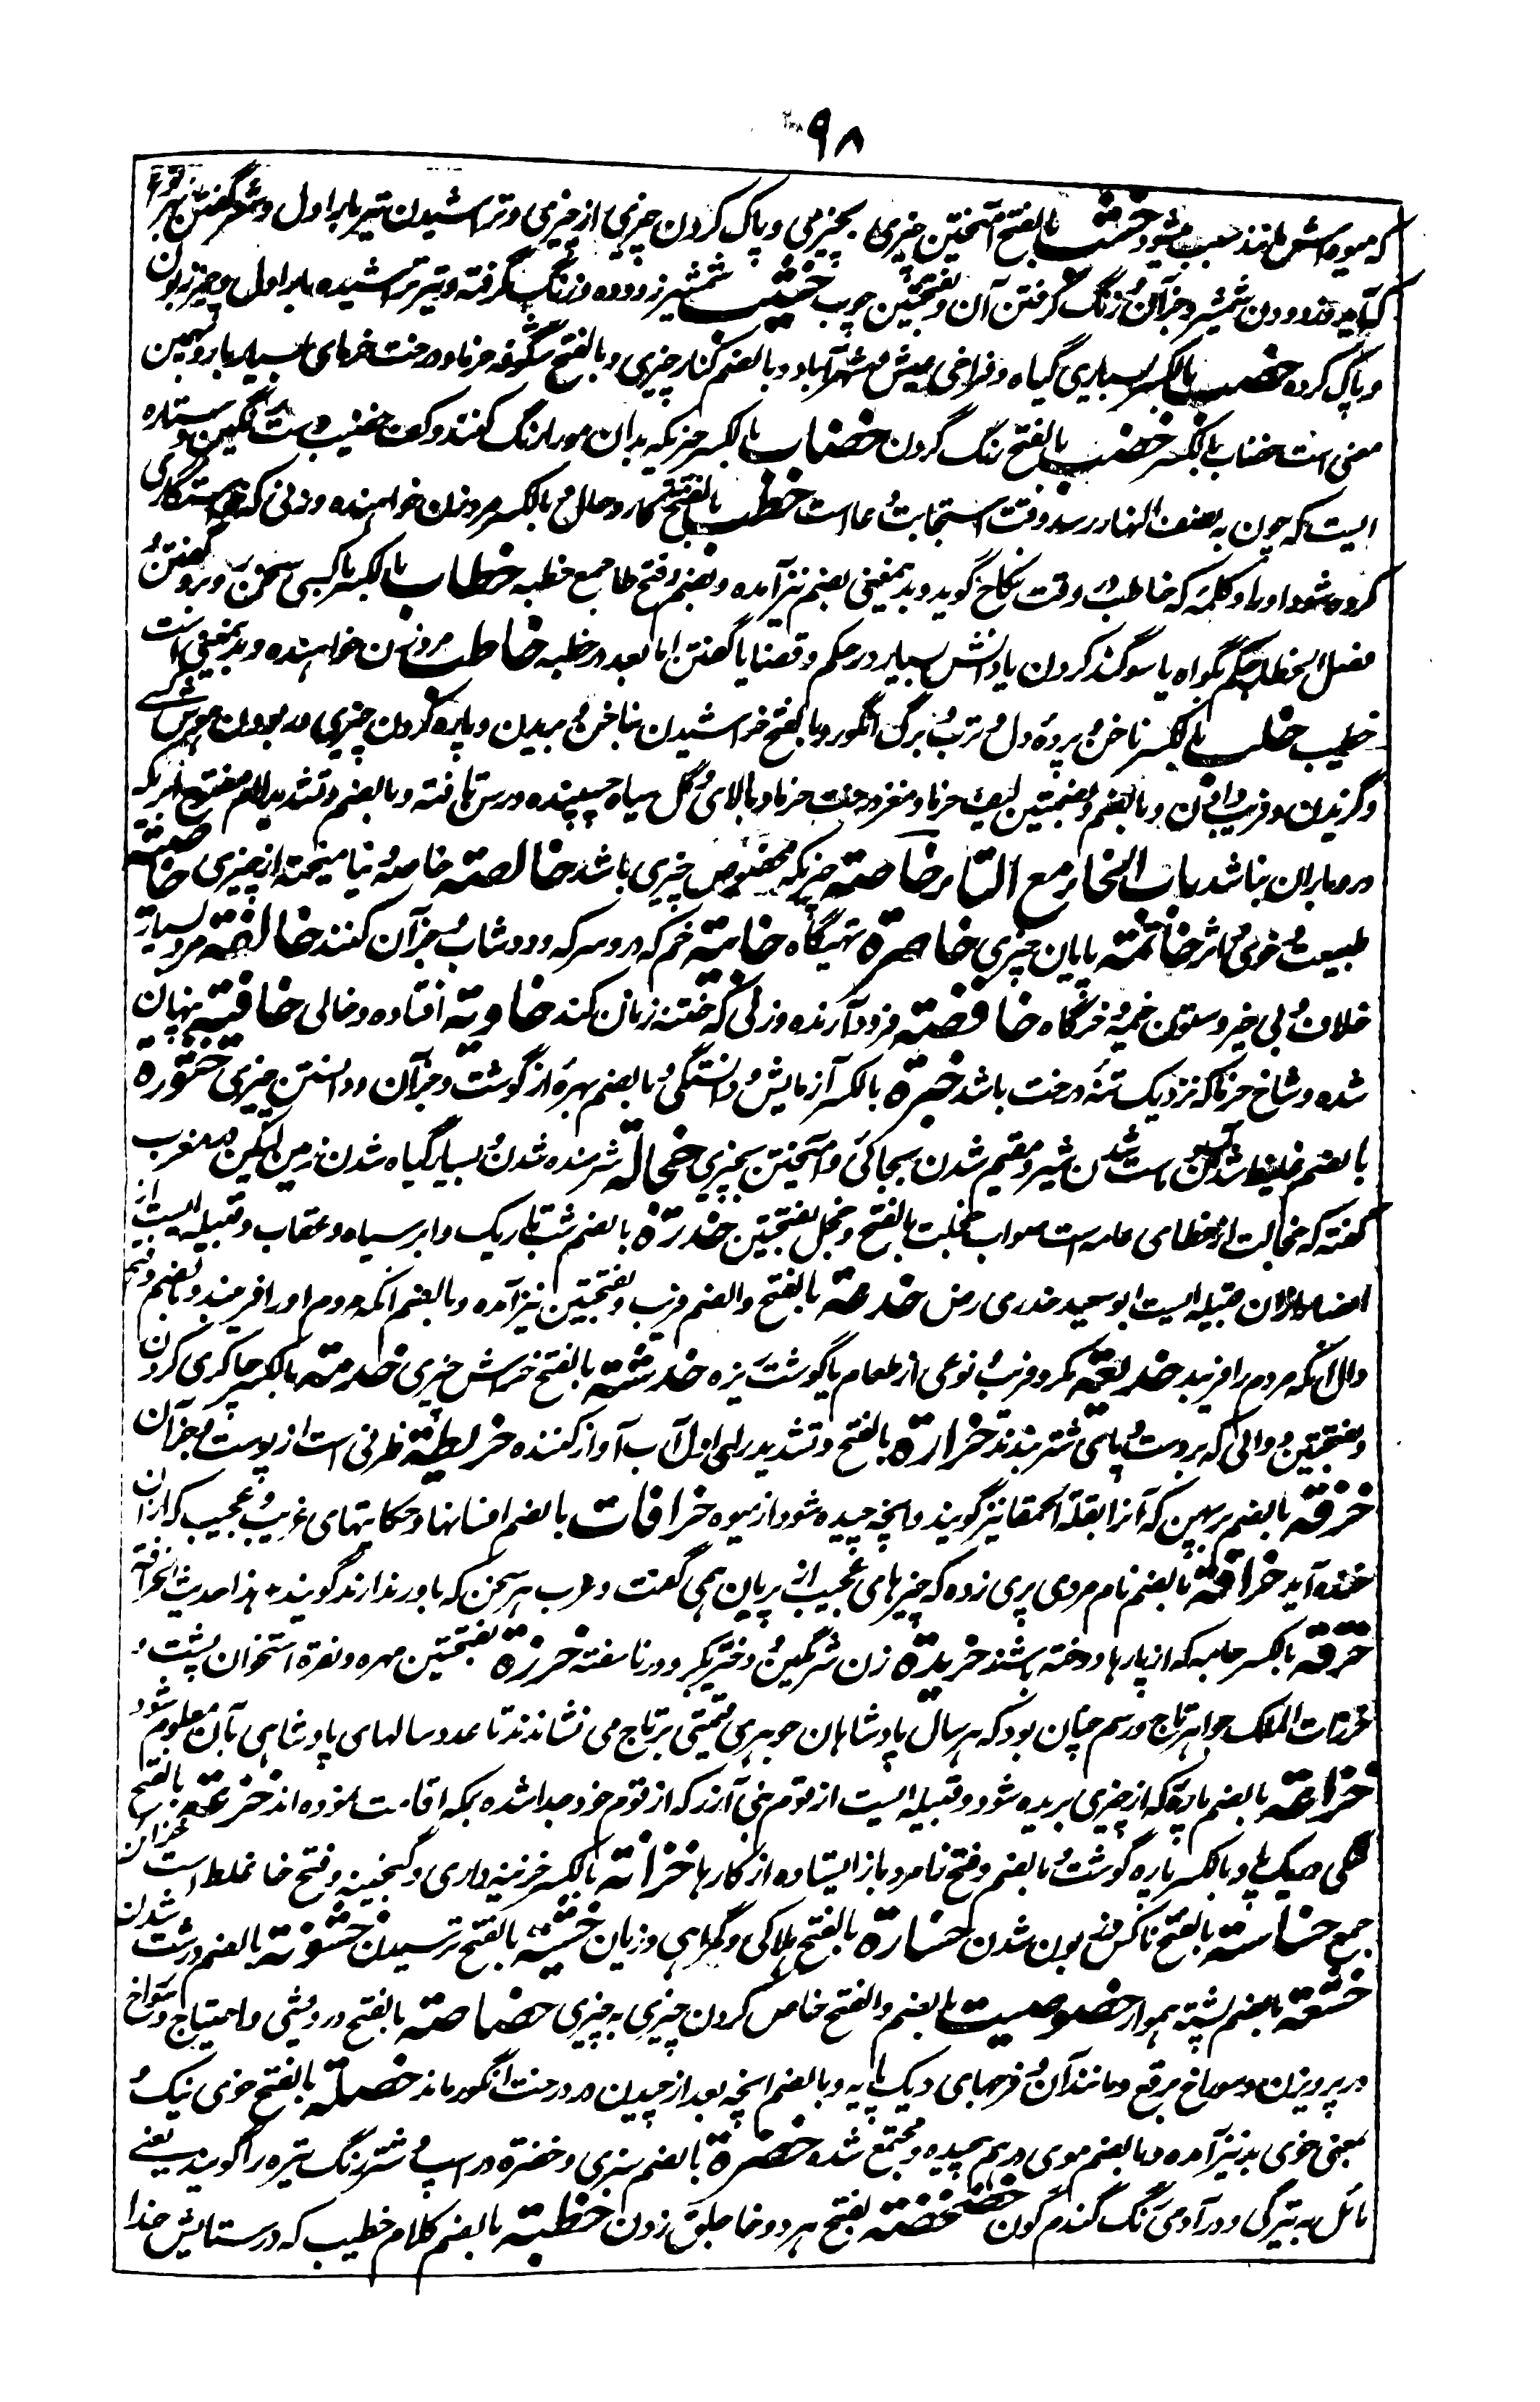 ۹۸
که میوه‌اش مانند سیب میشود خشب بالفتح آمیختن چیزی بچیزی و پاک کردن چیزی از چیزی و تراشیدن تیر بار اول و شعر گفتن بهر
زدودن شمشیر و جز آن و زنگ گرفتن آن و بفتحتین چوب خشیب شمشیر زدوده و زنگ گرفته و تیر تراشیده بار اول و چیز زبون
و پاک کرده خصب بالکسر بسیاری گیاه و فراخی عیش و شهر آباد و بالضم کنار چیزی و بالفتح شگوفه خرما و درخت خرمای بسیار بار و بهمین
معنی است خصاب بالکسر خضب بالفتح رنگ کردن خضاب بالکسر چیزیکه بدان مو را رنگ کنند و کف خضیب دست رنگین و ستاره
ایست که چون به نصف النهار رسد وقت استجابت دعا است خطب بالفتح کار و حال و بالکسر مرد زن خواهنده و زنی که خواستگاری
کرده شود او را و کلمه که خاطب در وقت نکاح گوید و بدین معنی بضم نیز آمده و بضم و فتح طا جمع خطبه خطاب بالکسر با کسی سخن رو برو گفتن و
فصل الخطاب حکم بگواه یا سوگند کردن یا دانش بسیار در حکم و قضا یا گفتن اما بعد در خطبه خاطب مرد زن خواهنده و بدین معنی است
خطیب خلب بالکسر ناخن و پردهٔ دل و ترب و برگ انگور و بالفتح خراشیدن بناخن و بریدن و پاره کردن چیزی و ربودن هوش کسی
و گزیدن و فریب دادن و بالضم و بضمتین لیف خرما و مغز درخت خرما و بالای و گل سیاه چسپنده و رسن تافته و بالضم و تشدید لام مفتوح ابریکه
در و باران نباشد باب الخاء مع التاء خاصة چیزیکه مخصوص چیزی باشد خالصة خاصه و نیامیخته از چیزی خاصیة
طبیعت و خوی و اثر خاتمة پایان چیزی خاصرة تهیگاه خابیة خم که در و سرکه و دوشاب و جز آن کنند خالفة مرد بسیار
خلاف و بی خیر و ستون خیمه و خرگاه خافضة فرود آرنده و زنی که ختنه زنان کند خاویة افتاده و خالی خافیة پنهان
شده و شاخ خرما که نزدیک تنهٔ درخت باشد خبرة بالکسر آزمایش و دانستگی و بالضم بهرهٔ از گوشت و جز آن و دانستن چیزی خثورة
بالضم غلیظ شدن و ماست شدن شیر و مقیم شدن بجائی و آمیختن بچیزی خجالة شرمنده شدن و بسیار گیاه شدن زمین لیکن در مغرب
گفته که خجالت از خطای عامه است صواب خجلت بالفتح و خجل بفتحتین خدرة بالضم شب تاریک و ابر سیاه و عقاب و قبیله ایست از
انصار و ازان قبیله ایست ابو سعید خدری رض خدعة بالفتح والضم فریب و بفتحتین نیز آمده و بالضم آنکه مردم او را فریبند و بضم و فتح
دال آنکه مردم را فریبد خدیعة مکر و فریب و نوعی از طعام با گوشت ریزه خدشة بالفتح خراش چیزی خدمة بالکسر چاکری کردن
و بفتحتین دوالی که بر دست و پای شتر بندند خرارة بالفتح و تشدید رای اول آب آواز کننده خریطة ظرفی است از پوست و جز آن
خرفة بالضم پرپهن که آنرا بقلة الحمقا نیز گویند و آنچه چیده شود از میوه خرافات بالضم افسانها و حکایتهای غریب و عجیب که ازان
خنده آید خرافة بالضم نام مردی پری زده که چیزهای عجیب از پریان همی گفت و عرب هر سخن که باور ندارند گویند هذا حدیث الخرافة
خرقة بالکسر جامه که از پارها دوخته باشند خریدة زن شرمگین و دختر بکر و در ناسفته خرزة بفتحتین مهره و نقره استخوان پشت و
خرزات الملک جواهر تاج و رسم چنان بود که هر سال پادشاهان جوهری قیمتی بر تاج می نشاندند تا عدد سالهای پادشاهی بآن معلوم شود
خزاعة بالضم پارهٔ که از چیزی بریده شود و قبیله ایست از قوم بنی آزد که از قوم خود جدا شده بمکه اقامت نموده اند خزعة بالفتح
لنگی در یک پا و بالکسر پاره گوشت و بالضم و فتح زا مرد باز ایستاده از کارها خزانة بالکسر خزینه داری و گنجینه و فتح خا غلط است خزائن
جمع خساسة بالفتح ناکس و زبون شدن خسارة بالفتح هلاکی و گمراهی و زیان خشیة بالفتح ترسیدن خشونة بالضم درشت شدن
خشعة بالضم پشته هموار خصوصیت بالضم والفتح خاص کردن چیزی به چیزی خصاصة بالفتح درویشی و احتیاج و سوراخ
در پرویزن و سوراخ برقع و مانند آن و فرجهای دیگ پایه و بالضم آنچه بعد از چیدن در درخت انگور ماند خصلة بالفتح خوی نیک و
بمعنی خوی بد نیز آمده و بالضم موی درهم پیچیده و مجتمع شده خضرة بالضم سبزی و خضرة در اسپ و شتر رنگ تیره را گویند یعنی
مائل به تیرگی و در آدمی رنگ گندم گون خضخضة بفتح هر دو خا جلق زدن خطبة بالضم کلام خطیب که در ستایش خدا